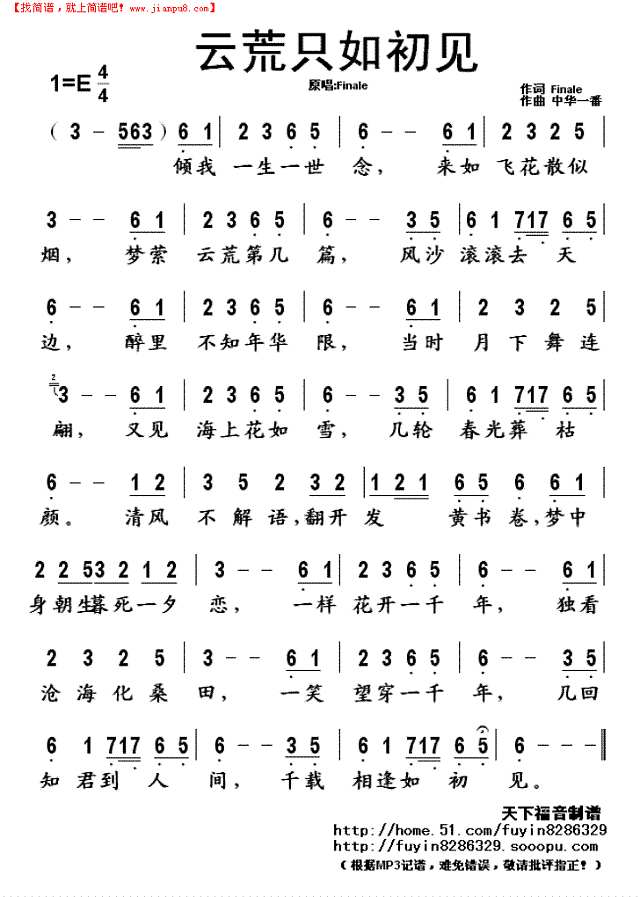 【找简谱，就上简谱吧！www.jianpu8.com】
云荒只如初见
1=E 4/4
原唱:Finale
作词 Finale
作曲 中华一番
（ 3 – 563 ）6 1 | 2 3 6 5 | 6 – – 6 1 | 2 3 2 5 |
倾我 一生一世 念， 来如 飞花散似
3 – – 6 1 | 2 3 6 5 | 6 – – 3 5 | 6 1 717 6 5 |
烟， 梦萦 云荒第几 篇， 风沙 滚滚去 天
6 – – 6 1 | 2 3 6 5 | 6 – – 6 1 | 2 3 2 5 |
边， 醉里 不知年华 限， 当时 月下舞连
2 3 – – 6 1 | 2 3 6 5 | 6 – – 3 5 | 6 1 717 6 5 |
翩， 又见 海上花如 雪， 几轮 春光葬 枯
6 – – 1 2 | 3 5 2 3 2 | 1 2 1 6 5 6 6 1 |
颜。 清风 不解语,翻开 发 黄书卷,梦中
2 2 5 3 2 1 2 | 3 – – 6 1 | 2 3 6 5 | 6 – – 6 1 |
身朝生暮死一夕 恋， 一样 花开一千 年， 独看
2 3 2 5 | 3 – – 6 1 | 2 3 6 5 | 6 – – 3 5 |
沧海化桑 田， 一笑 望穿一千 年， 几回
6 1 717 6 5 | 6 – – 3 5 | 6 1 717 6 5 | 6 – – – ‖
知君到 人 间， 千载 相逢如 初 见。
天下福音制谱
http://home.51.com/fuyin8286329
http://fuyin8286329.sooopu.com
（根据MP3记谱，难免错误，敬请批评指正！）